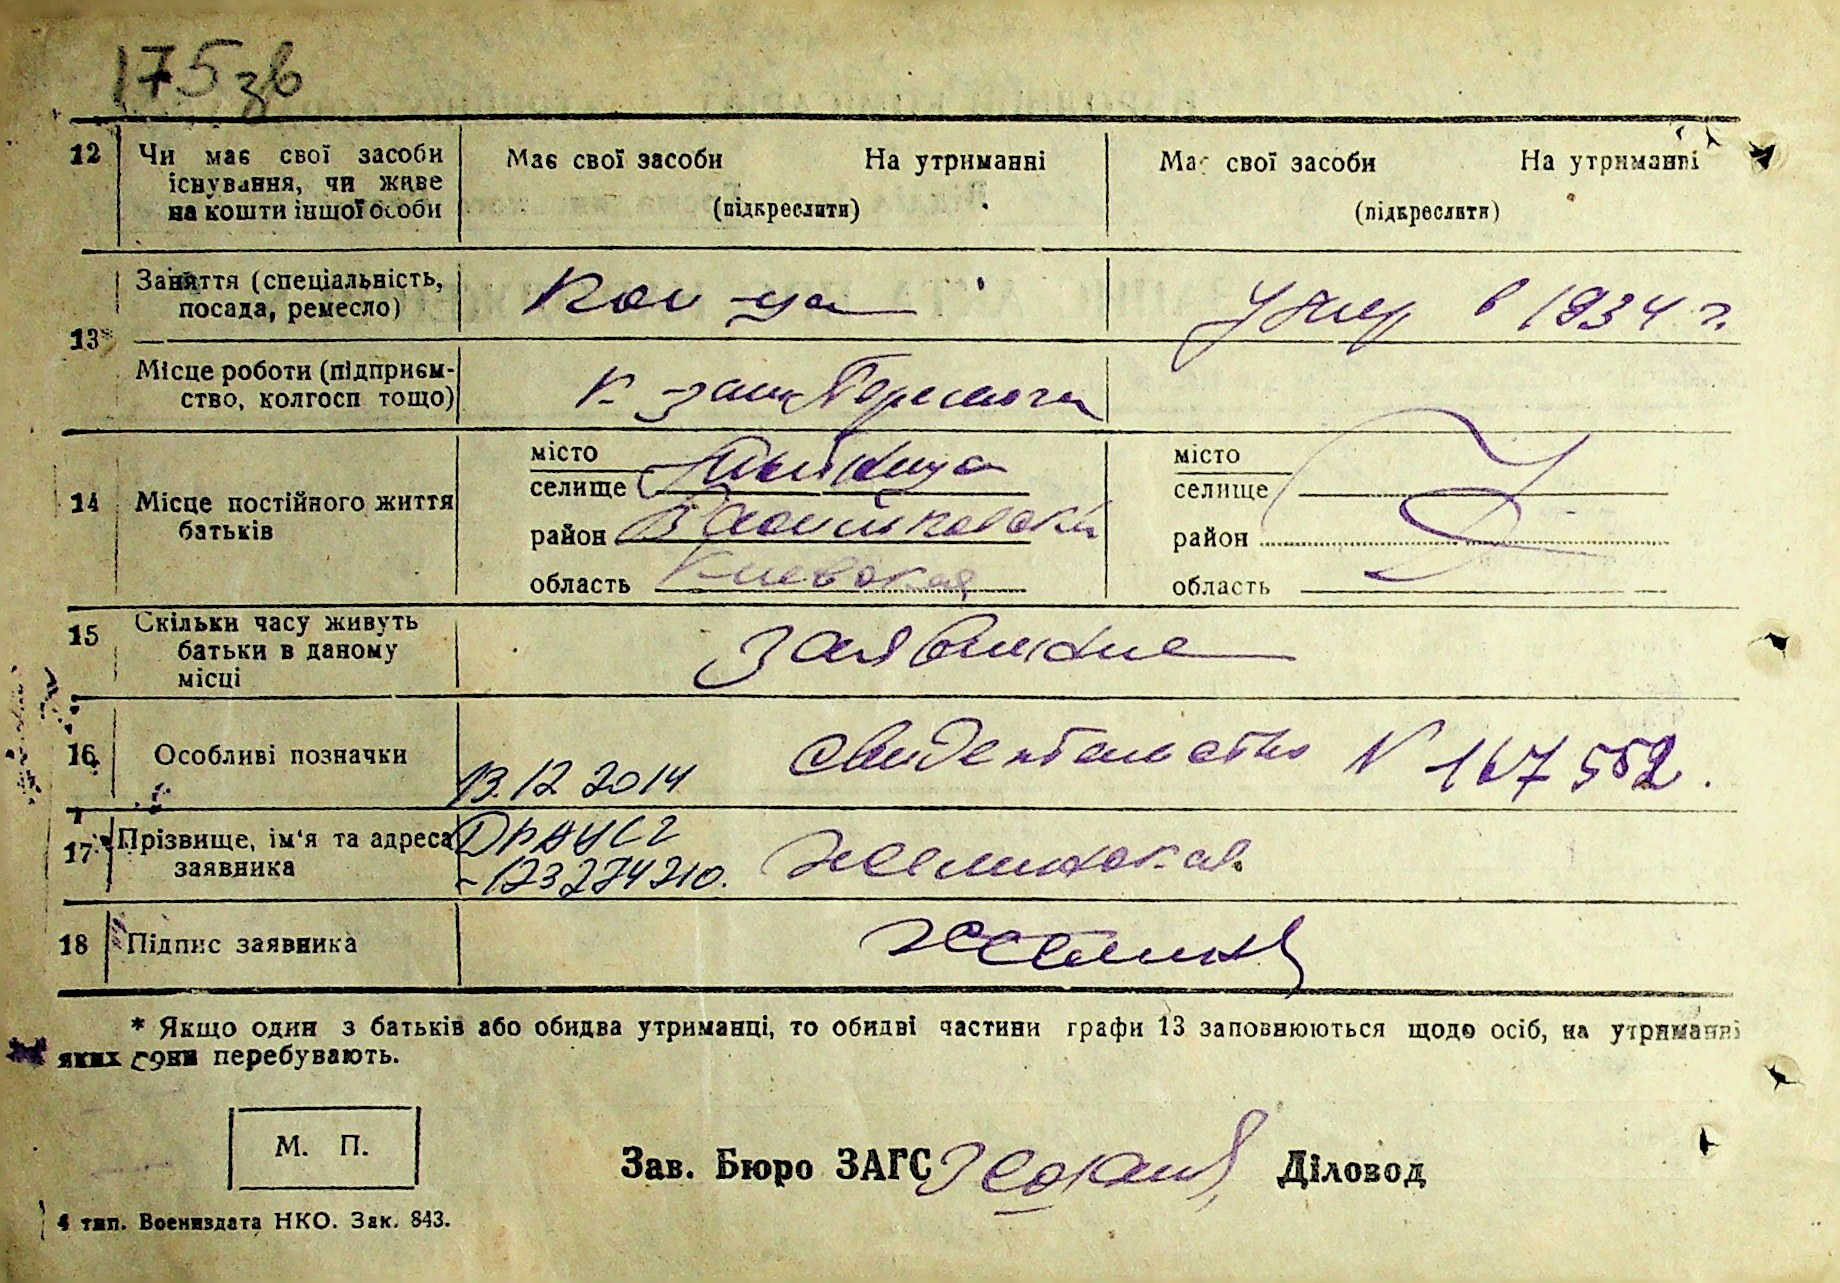 175 зв
12 Чи має свої засоби існування, чи живе на кошти іншої особи
Має свої засоби На утриманні
(підкреслити)
Має свої засоби На утриманні
(підкреслити)
13* Заняття (спеціальність, посада, ремесло)
Кол-ца
Умер в 1934 г.
Місце роботи (підприємство, колгосп тощо)
К-з
14 Місце постійного життя батьків
місто
селище
район
область Киевская
місто
селище
район
область
15 Скільки часу живуть батьки в даному місці
16 Особливі позначки
13.12 2014
свидетельство N 167552.
17 Прізвище, ім'я та адреса заявника
ДРАЦСГ
-123274210.
18 Підпис заявника
* Якщо один з батьків або обидва утриманці, то обидві частини графи 13 заповнюються щодо осіб, на утриманні
яких вони перебувають.
М. П.
Зав. Бюро ЗАГС Діловод
4 тип. Воениздата НКО. Зак. 843.